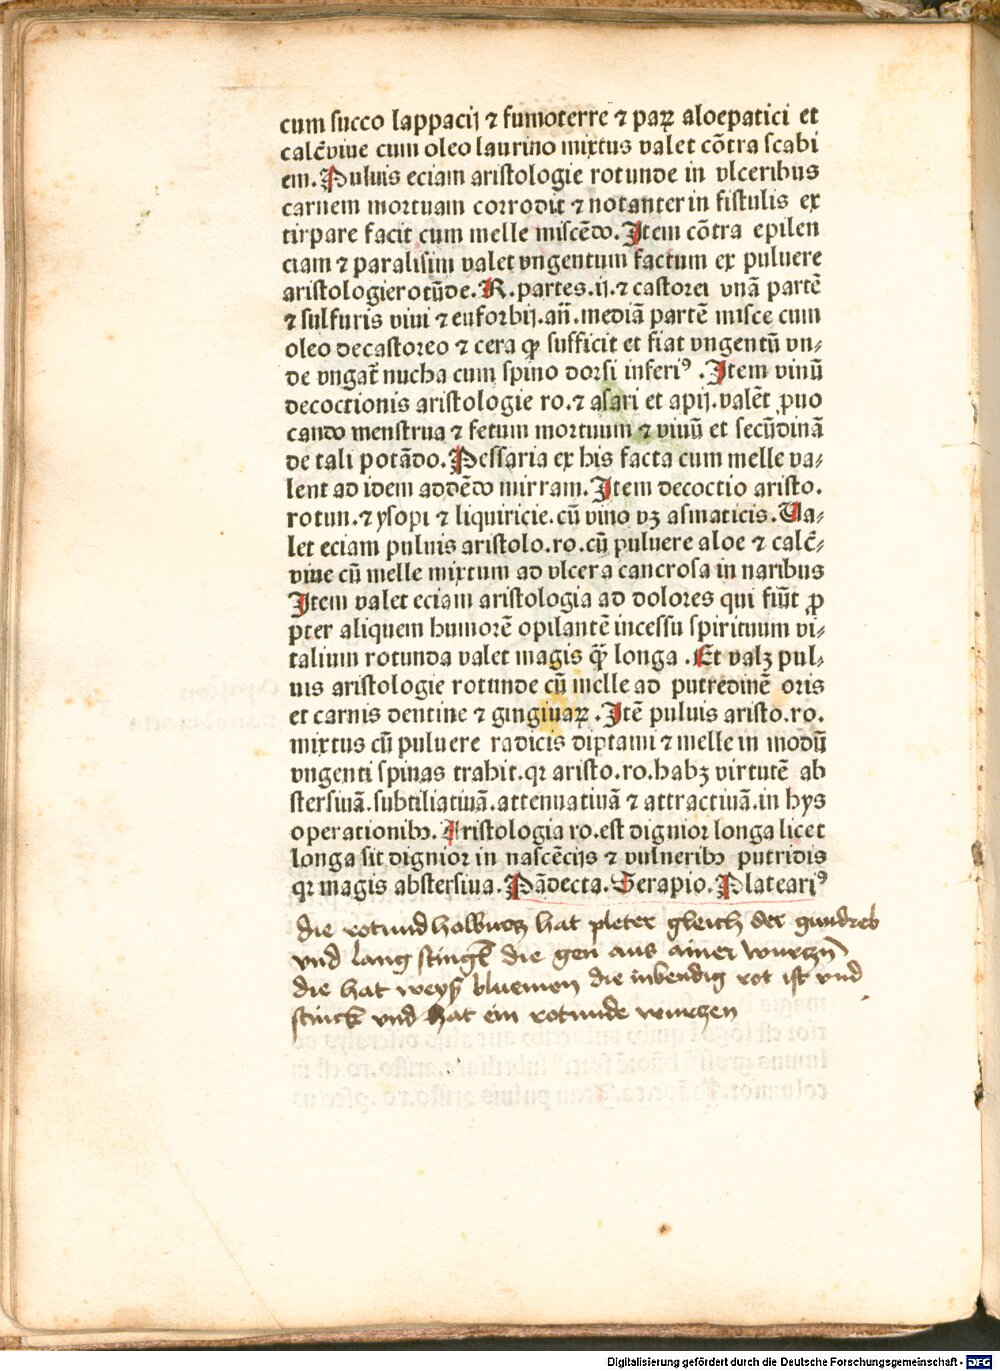 cum succo lappacij ⁊ fumoterre ⁊ paꝝ aloepatici et
calc̄viue cum oleo laurino mixtus valet cōtra scabi
em. Puluis eciam aristologie rotunde in vlceribus
carnem mortuam corrodit ⁊ notanter in fistulis ex
tirpare facit cum melle miscēdo. Item cōtra epilen
ciam ⁊ paralisim valet vngentum factum ex puluere
aristologierotūde. R. partes. ij. ⁊ castorei vnā partē
⁊ sulfuris viui ⁊ euforbij. añ. mediā partē misce cum
oleo decastoreo ⁊ cera ꝙ sufficit et fiat vngentū vn⸗
de vngat̄ nucha cum spino dorsi inferiꝰ. Item vinū
decoctionis aristologie ro. ⁊ asari et apij. valēt ꝓuo
cando menstrua ⁊ fetum mortuum ⁊ viuū et secūdinā
de tali potādo. Pessaria ex his facta cum melle va⸗
lent ad idem addēdo mirram. Item decoctio aristo.
rotun. ⁊ ysopi ⁊ liquiricie. cū vino vꝫ asmaticis. Ua⸗
let eciam puluis aristolo. ro. cū puluere aloe ⁊ calc̄⸗
viue cū melle mixtum ad vlcera cancrosa in naribus
Item valet eciam aristologia ad dolores qui fiūt ꝓp
pter aliquem humorē opilantē incessu spirituum vi⸗
talium rotunda valet magis q̄ longa. Et valꝫ pul⸗
uis aristologie rotunde cū melle ad putredinē oris
et carnis dentine ⁊ gingiuaꝝ. Itē puluis aristo. ro.
mixtus cū puluere radicis diptami ⁊ melle in modū
vngenti spinas trahit. qr aristo. ro. habꝫ virtutē ab
stersiuā. subtiliatiuā. attenuatiuā ⁊ attractiuā. in hys
operationibꝫ. Aristologia ro. est dignior longa licet
longa sit dignior in nascēcijs ⁊ vulneribꝫ putridis
qr magis abstersiua. Pādecta. Serapio. Platearíꝰ
die rotund holburcz hat pleter gleich der gundreb
vnd lang stingl die gen aus ainer wurczn
die hat weyß bluemen die inbendig rot ist vnd
stinck vnd hat ein rotunde wurczen
Digitalisierung gefördert durch die Deutsche Forschungsgemeinschaft - DFG